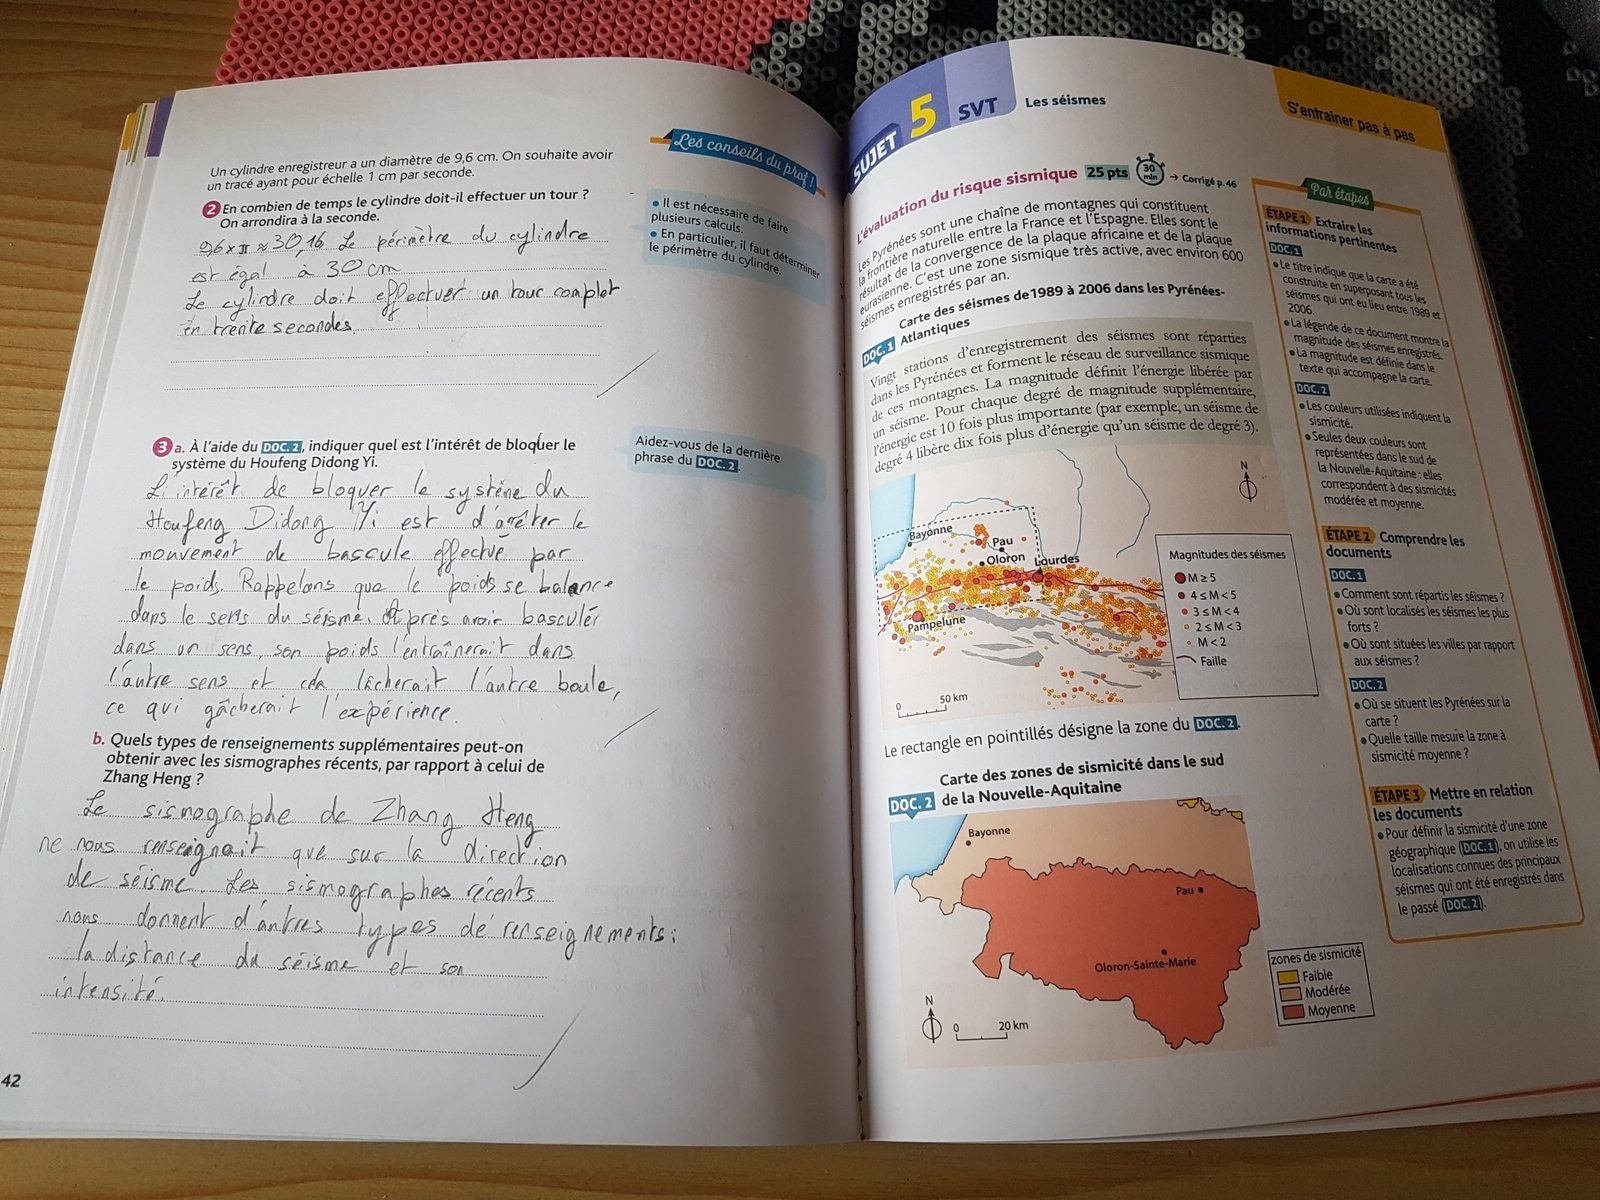 Un cylindre enregistreur a un diamètre de 9,6 cm. On souhaite avoir
un tracé ayant pour échelle 1 cm par seconde.
2 En combien de temps le cylindre doit-il effectuer un tour ?
On arrondira à la seconde.
96 x π ≈ 30,16 Le périmètre du cylindre
est égal à 30 cm
Le cylindre doit effectuer un tour complet
en trente secondes.
Les conseils du prof !
• Il est nécessaire de faire
plusieurs calculs.
• En particulier, il faut déterminer
le périmètre du cylindre.
3 a. À l'aide du DOC. 2, indiquer quel est l'intérêt de bloquer le
système du Houfeng Didong Yi.
L'intérêt de bloquer le système du
Houfeng Didong Yi est d'arrêter le
mouvement de bascule effectué par
le poids. Rappelons que le poids se balance
dans le sens du séisme. Après avoir basculé
dans un sens, son poids l'entraînerait dans
l'autre sens et cela lâcherait l'autre boule,
ce qui gâcherait l'expérience.
Aidez-vous de la dernière
phrase du DOC. 2.
b. Quels types de renseignements supplémentaires peut-on
obtenir avec les sismographes récents, par rapport à celui de
Zhang Heng ?
Le sismographe de Zhang Heng
ne nous renseignait que sur la direction
de séisme. Les sismographes récents
nous donnent d'autres types de renseignements :
la distance du séisme et son
intensité.
42
SUJET 5 SVT Les séismes
S'entraîner pas à pas
L'évaluation du risque sismique 25 pts 30 min → Corrigé p. 46
Les Pyrénées sont une chaîne de montagnes qui constituent
la frontière naturelle entre la France et l'Espagne. Elles sont le
résultat de la convergence de la plaque africaine et de la plaque
eurasienne. C'est une zone sismique très active, avec environ 600
séismes enregistrés par an.
DOC. 1 Carte des séismes de 1989 à 2006 dans les Pyrénées-
Atlantiques
Vingt stations d'enregistrement des séismes sont réparties
dans les Pyrénées et forment le réseau de surveillance sismique
de ces montagnes. La magnitude définit l'énergie libérée par
un séisme. Pour chaque degré de magnitude supplémentaire,
l'énergie est 10 fois plus importante (par exemple, un séisme de
degré 4 libère dix fois plus d'énergie qu'un séisme de degré 3).
N
Bayonne
Pau
Oloron
Lourdes
Pampelune
0 50 km
Magnitudes des séismes
M ≥ 5
4 ≤ M < 5
3 ≤ M < 4
2 ≤ M < 3
M < 2
Faille
Le rectangle en pointillés désigne la zone du DOC. 2.
DOC. 2 Carte des zones de sismicité dans le sud
de la Nouvelle-Aquitaine
Bayonne
Pau
Oloron-Sainte-Marie
N
0 20 km
zones de sismicité
Faible
Modérée
Moyenne
Par étapes
ÉTAPE 1 Extraire les
informations pertinentes
DOC. 1
• Le titre indique que la carte a été
construite en superposant tous les
séismes qui ont eu lieu entre 1989 et
2006.
• La légende de ce document montre la
magnitude des séismes enregistrés.
• La magnitude est définie dans le
texte qui accompagne la carte.
DOC. 2
• Les couleurs utilisées indiquent la
sismicité.
• Seules deux couleurs sont
représentées dans le sud de
la Nouvelle-Aquitaine : elles
correspondent à des sismicités
modérée et moyenne.
ÉTAPE 2 Comprendre les
documents
DOC. 1
• Comment sont répartis les séismes ?
• Où sont localisés les séismes les plus
forts ?
• Où sont situées les villes par rapport
aux séismes ?
DOC. 2
• Où se situent les Pyrénées sur la
carte ?
• Quelle taille mesure la zone à
sismicité moyenne ?
ÉTAPE 3 Mettre en relation
les documents
• Pour définir la sismicité d'une zone
géographique (DOC. 1), on utilise les
localisations connues des principaux
séismes qui ont été enregistrés dans
le passé (DOC. 2).